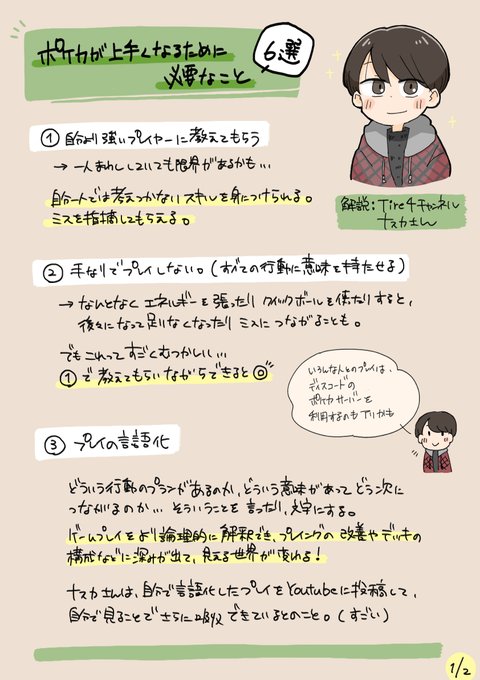 ポケカが上手くなるために
必要なこと
6選
① 自分より強いプレイヤーに教えてもらう
→ 一人まわししていても限界があるかも…
自分一人では考えつかないスキルを身につけられる。
ミスを指摘してもらえる。
解説：Tire4チャンネル
ナスカさん
② 手なりでプレイしない。(すべての行動に意味を持たせる)
→ なんとなくエネルギーを張ったりクイックボールを使ったりすると、
後々になって足りなくなったりミスにつながることも。
でもこれってすごくむつかしい…
①で教えてもらいながらできると◎
いろんな人とのプレイは、
ディスコードの
ポケカサーバーを
利用するのもアリかも
③ プレイの言語化
どういう行動のプランがあるのか、どういう意味があってどう次に
つながるのか… そういうことを言ったり、文字にする。
ゲームプレイをより論理的に解釈でき、プレイングの改善やデッキの
構成などに深みが出て、見える世界が変わる！
ナスカさんは、自分で言語化したプレイをYoutubeに投稿して、
自分で見ることでさらに吸収できているとのこと。(すごい)
1/2